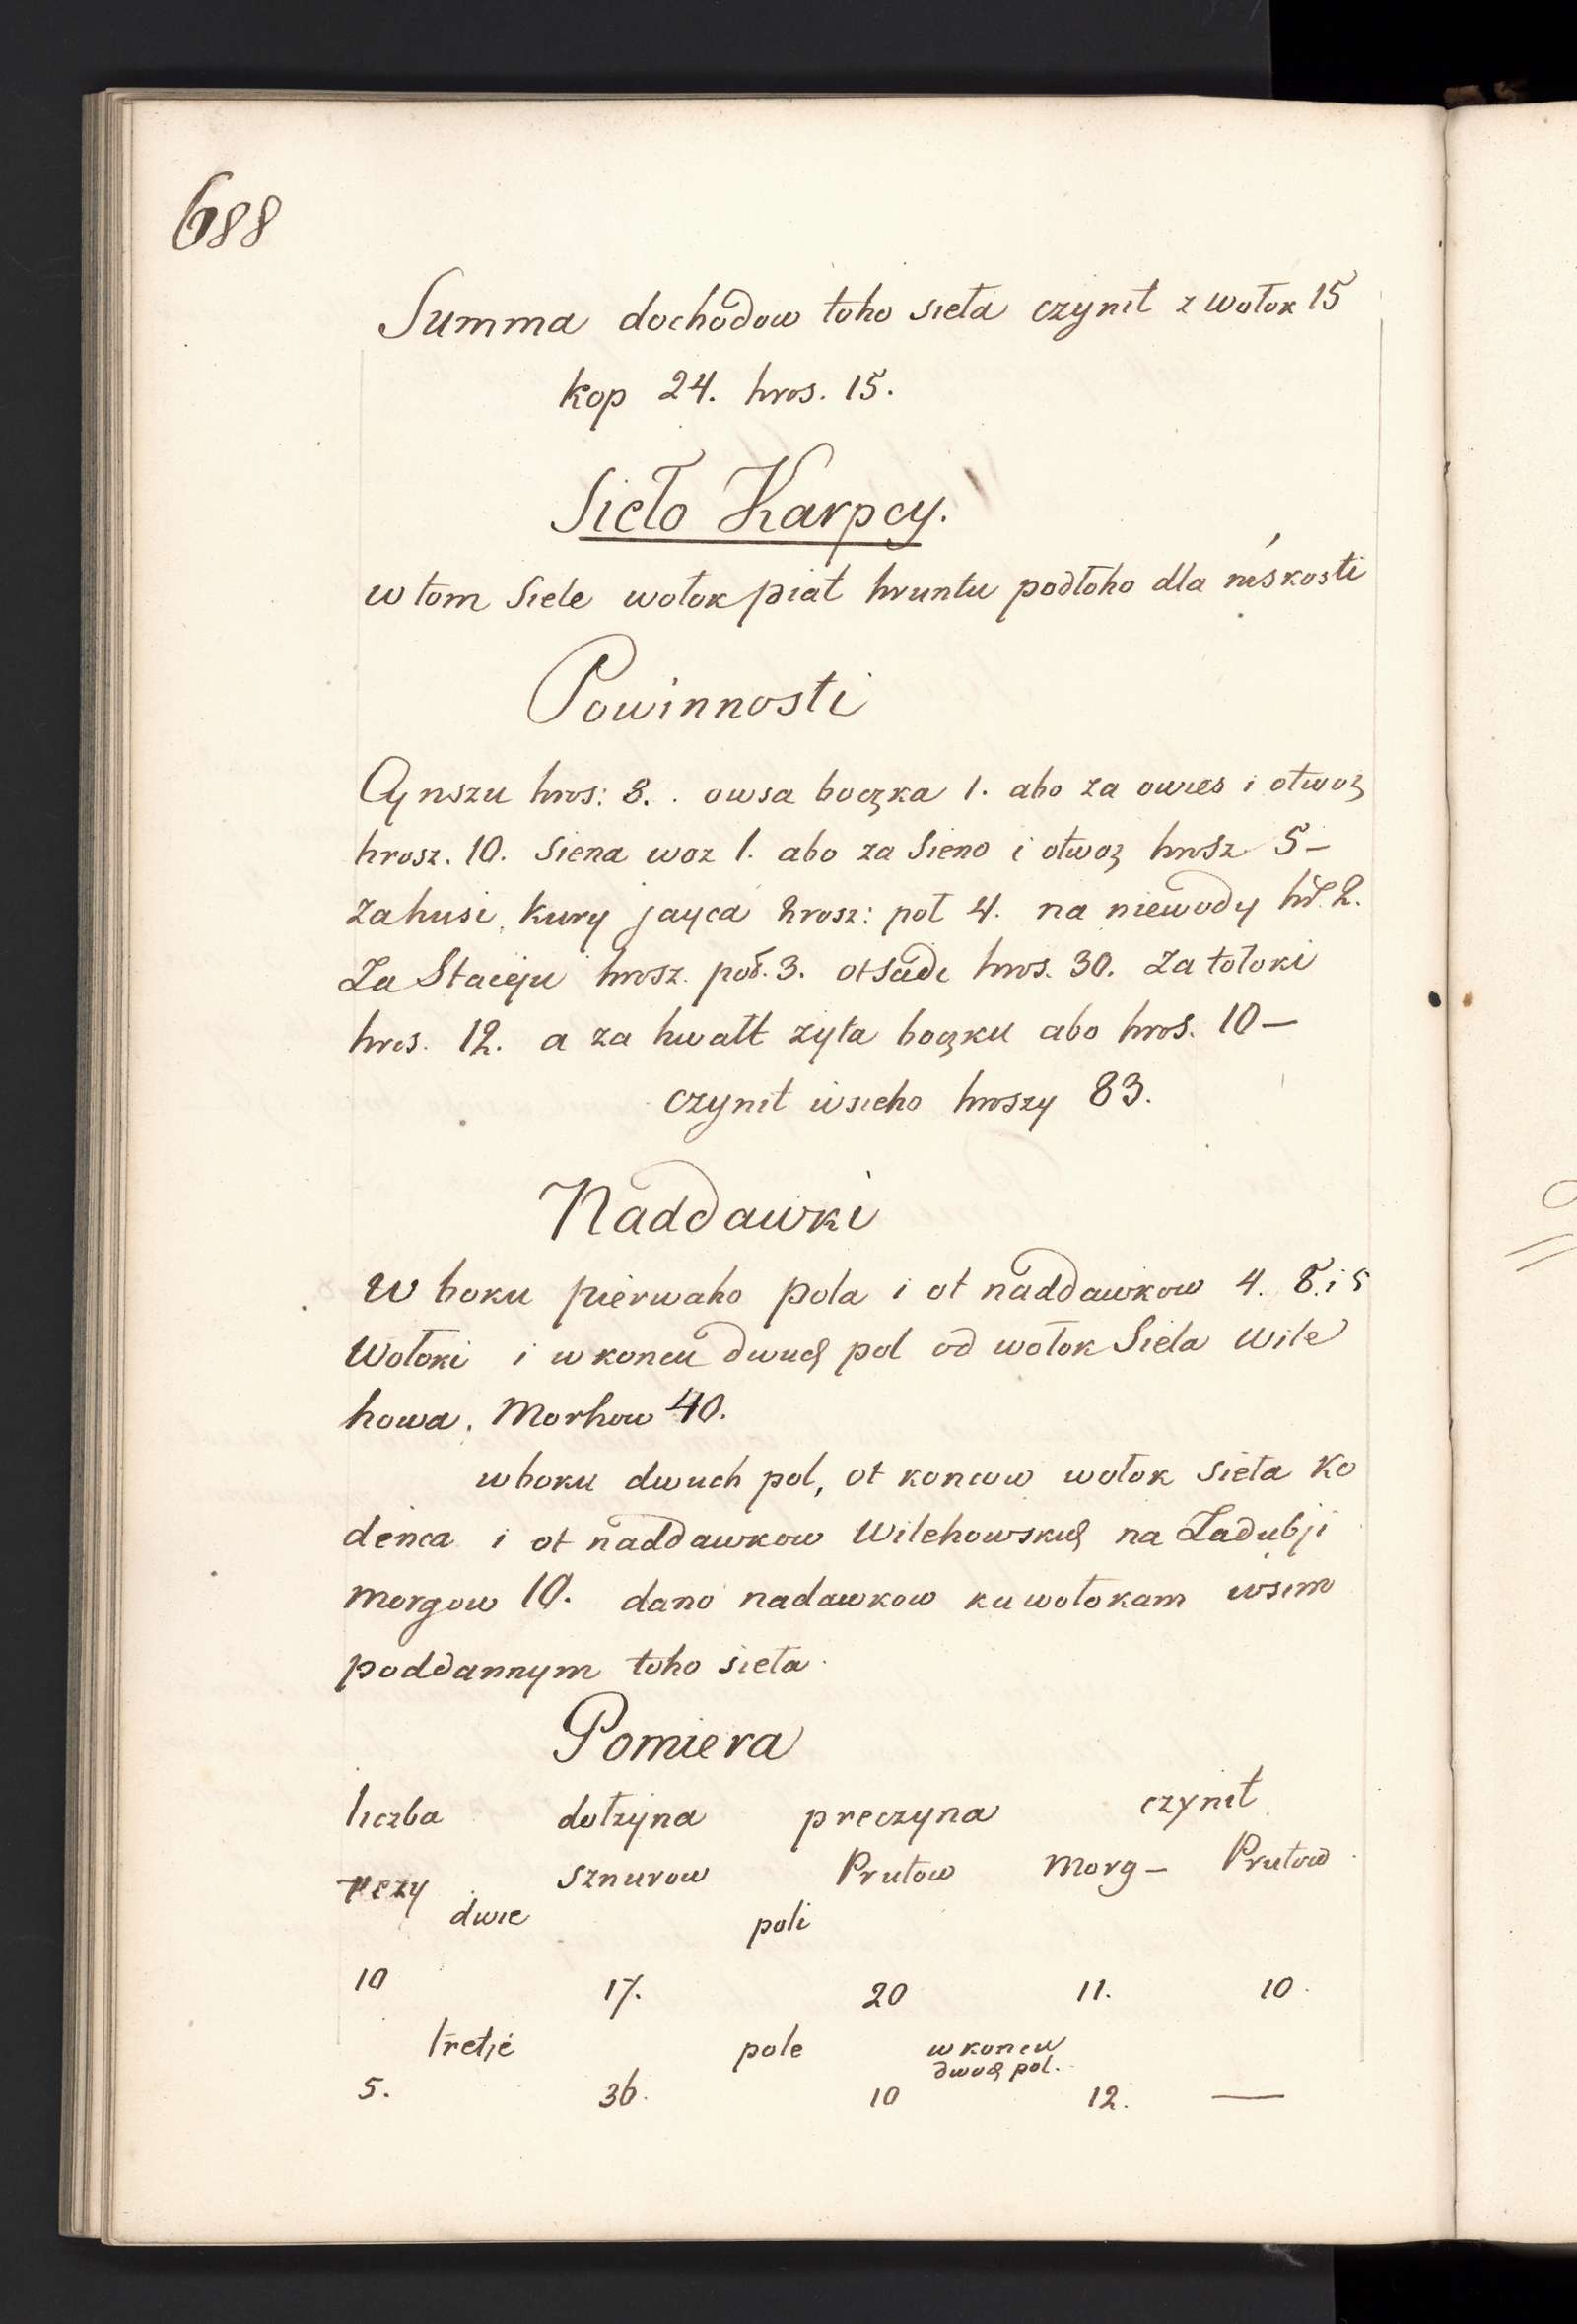 688
Summa dochodow toho sieła czynit z wołok 15
kop 24. hros. 15.
Sieło Karpcy.
w tom siele wołok piat hruntu podłoho dla niskosti
Powinnosti
Cynszu hros: 8. owsa boczka 1. abo za owies i otwoz
hrosz. 10. siena woz 1. abo za sieno i otwoz hrosz 5 –
za husi, kury jayca hrosz: poł 4. na niewody hr. 2.
Za Staciju hrosz. poł. 3. osade hros. 30. za tołoki
hros. 12. a za hwałt zyta boczku abo hros. 10 –
czynit wsieho hroszy 83.
Naddawki
W boku pierwaho pola i ot naddawkow 4. 8. i 5
Wołoki i w koncu dwuch pol od wołok Sieła Wile
howa. Morhow 40.
w boku dwuch pol, ot koncow wołok sieła Ko
denca i ot naddawkow Wilehowskich na Zadubji
morgow 10. dano nadawkow ku wołokam wsim
poddannym toho sieła.
Pomiera
liczba dołzyna preczyna czynit
rezy sznurow Prutow Morg – Prutow
dwie poli
10 17. 20 11. 10.
tretje pole w koncu
dwoch pol.
5. 36. 10 12. —